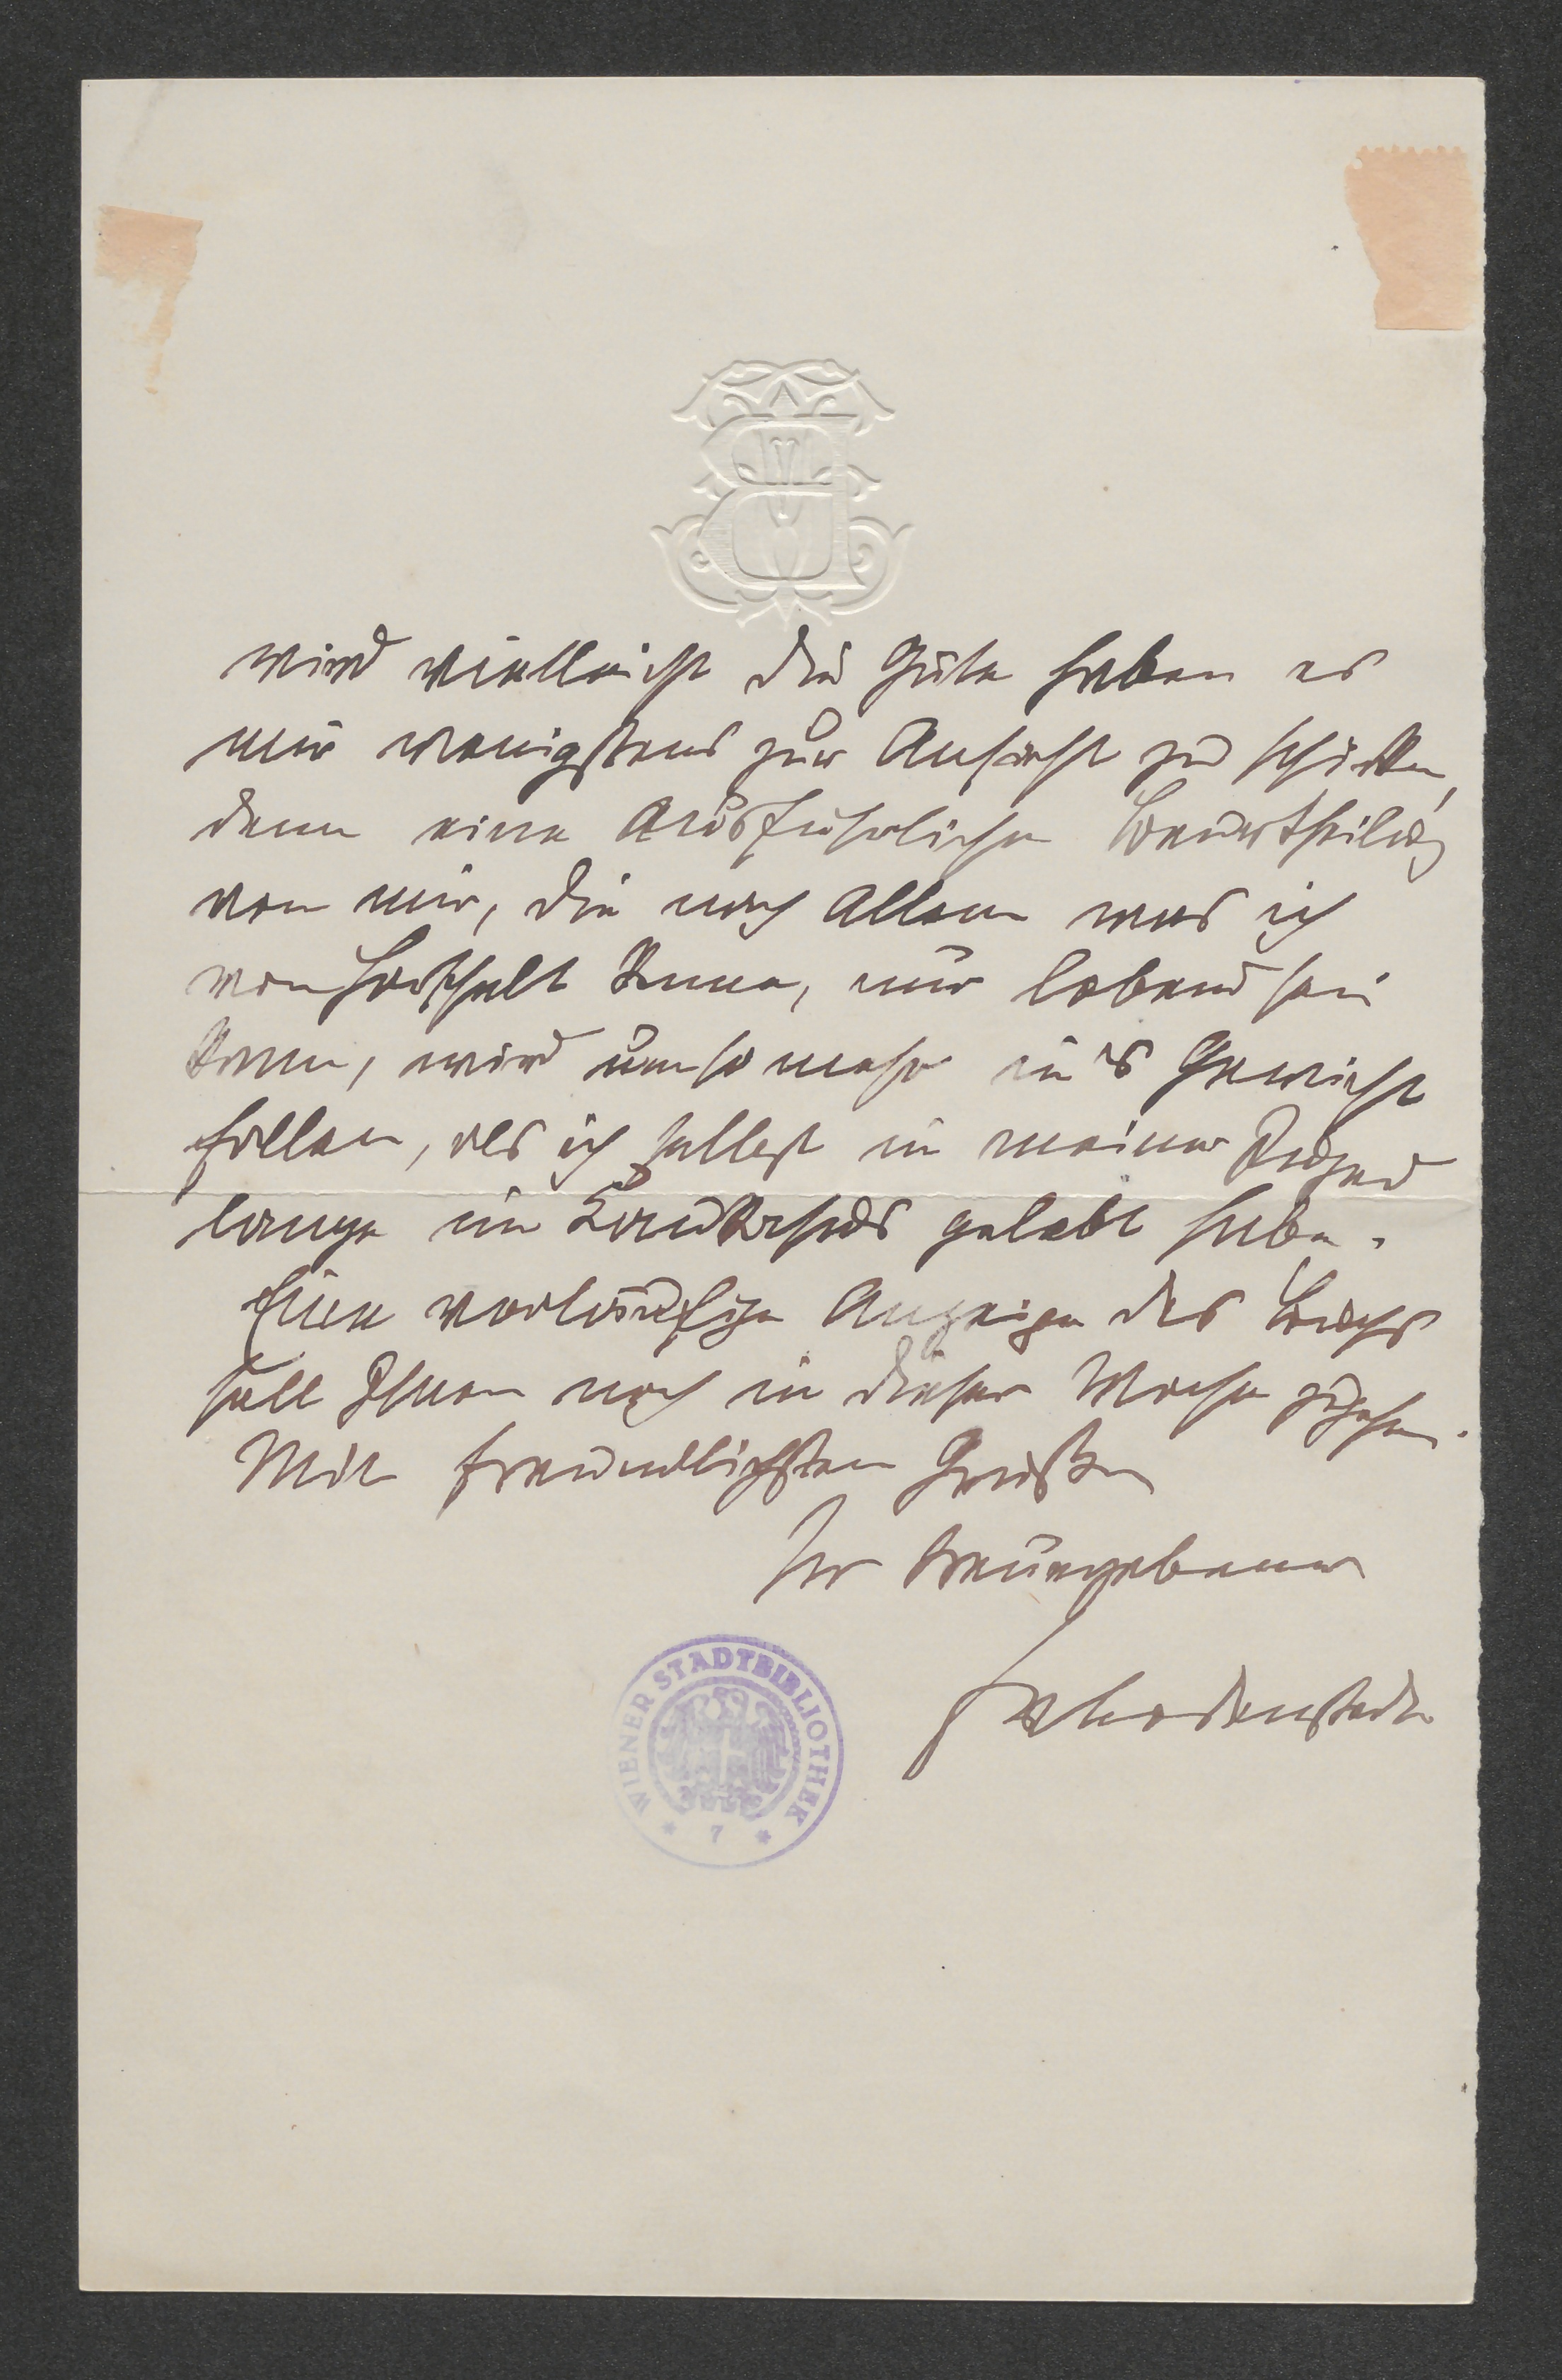 wird vielleicht die Güte haben es
mir wenigstens zur Ansicht zu schicken,
denn eine Ausführliche Beurtheilung
von mir, die nach Allem was ich
von kenne, nur lobend sein
kann, wird umsomehr in's Gewicht
fallen, als ich selbst in meiner Jugend
lange im Kaukasus gelebt habe.
Eine vorläufige Anzeige des Buchs
soll Ihnen noch in dieser Woche zugehen.
Mit freundlichsten Grüßen
Ihr treuergebener
FvBodenstedt
WIENER STADTBIBLIOTHEK
* 7 *